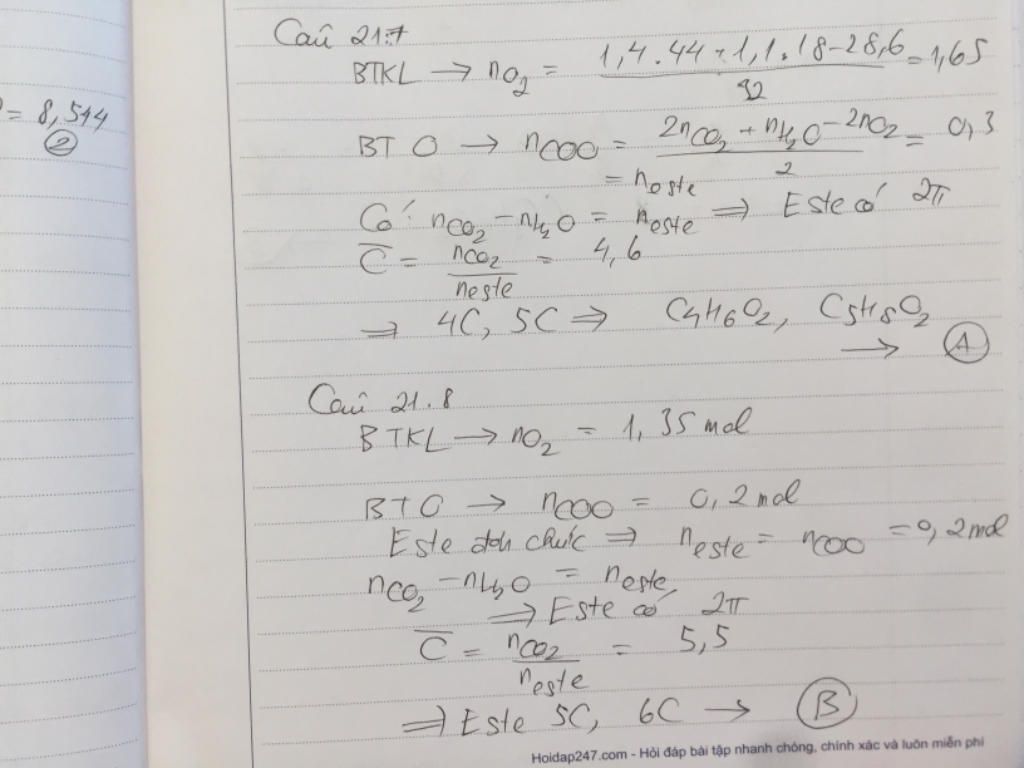 = 8,514
②
Câu 21.7
BTKL → nO2 = (1,4.44 + 1,1.18 - 28,6)/32 = 1,65
BT O → nCOO = (2nCO2 + nH2O - 2nO2)/2 = 0,3
= neste
Có: nCO2 - nH2O = neste ⇒ Este có 2π
C̅ = nCO2/neste = 4,6
⇒ 4C, 5C ⇒ C4H6O2, C5H8O2
→ Ⓐ
Câu 21.8
BTKL → nO2 = 1,35 mol
BT O → nCOO = 0,2 mol
Este đơn chức ⇒ neste = nCOO = 0,2 mol
nCO2 - nH2O = neste
⇒ Este có 2π
C̅ = nCO2/neste = 5,5
⇒ Este 5C, 6C → Ⓑ
Hoidap247.com - Hỏi đáp bài tập nhanh chóng, chính xác và luôn miễn phí